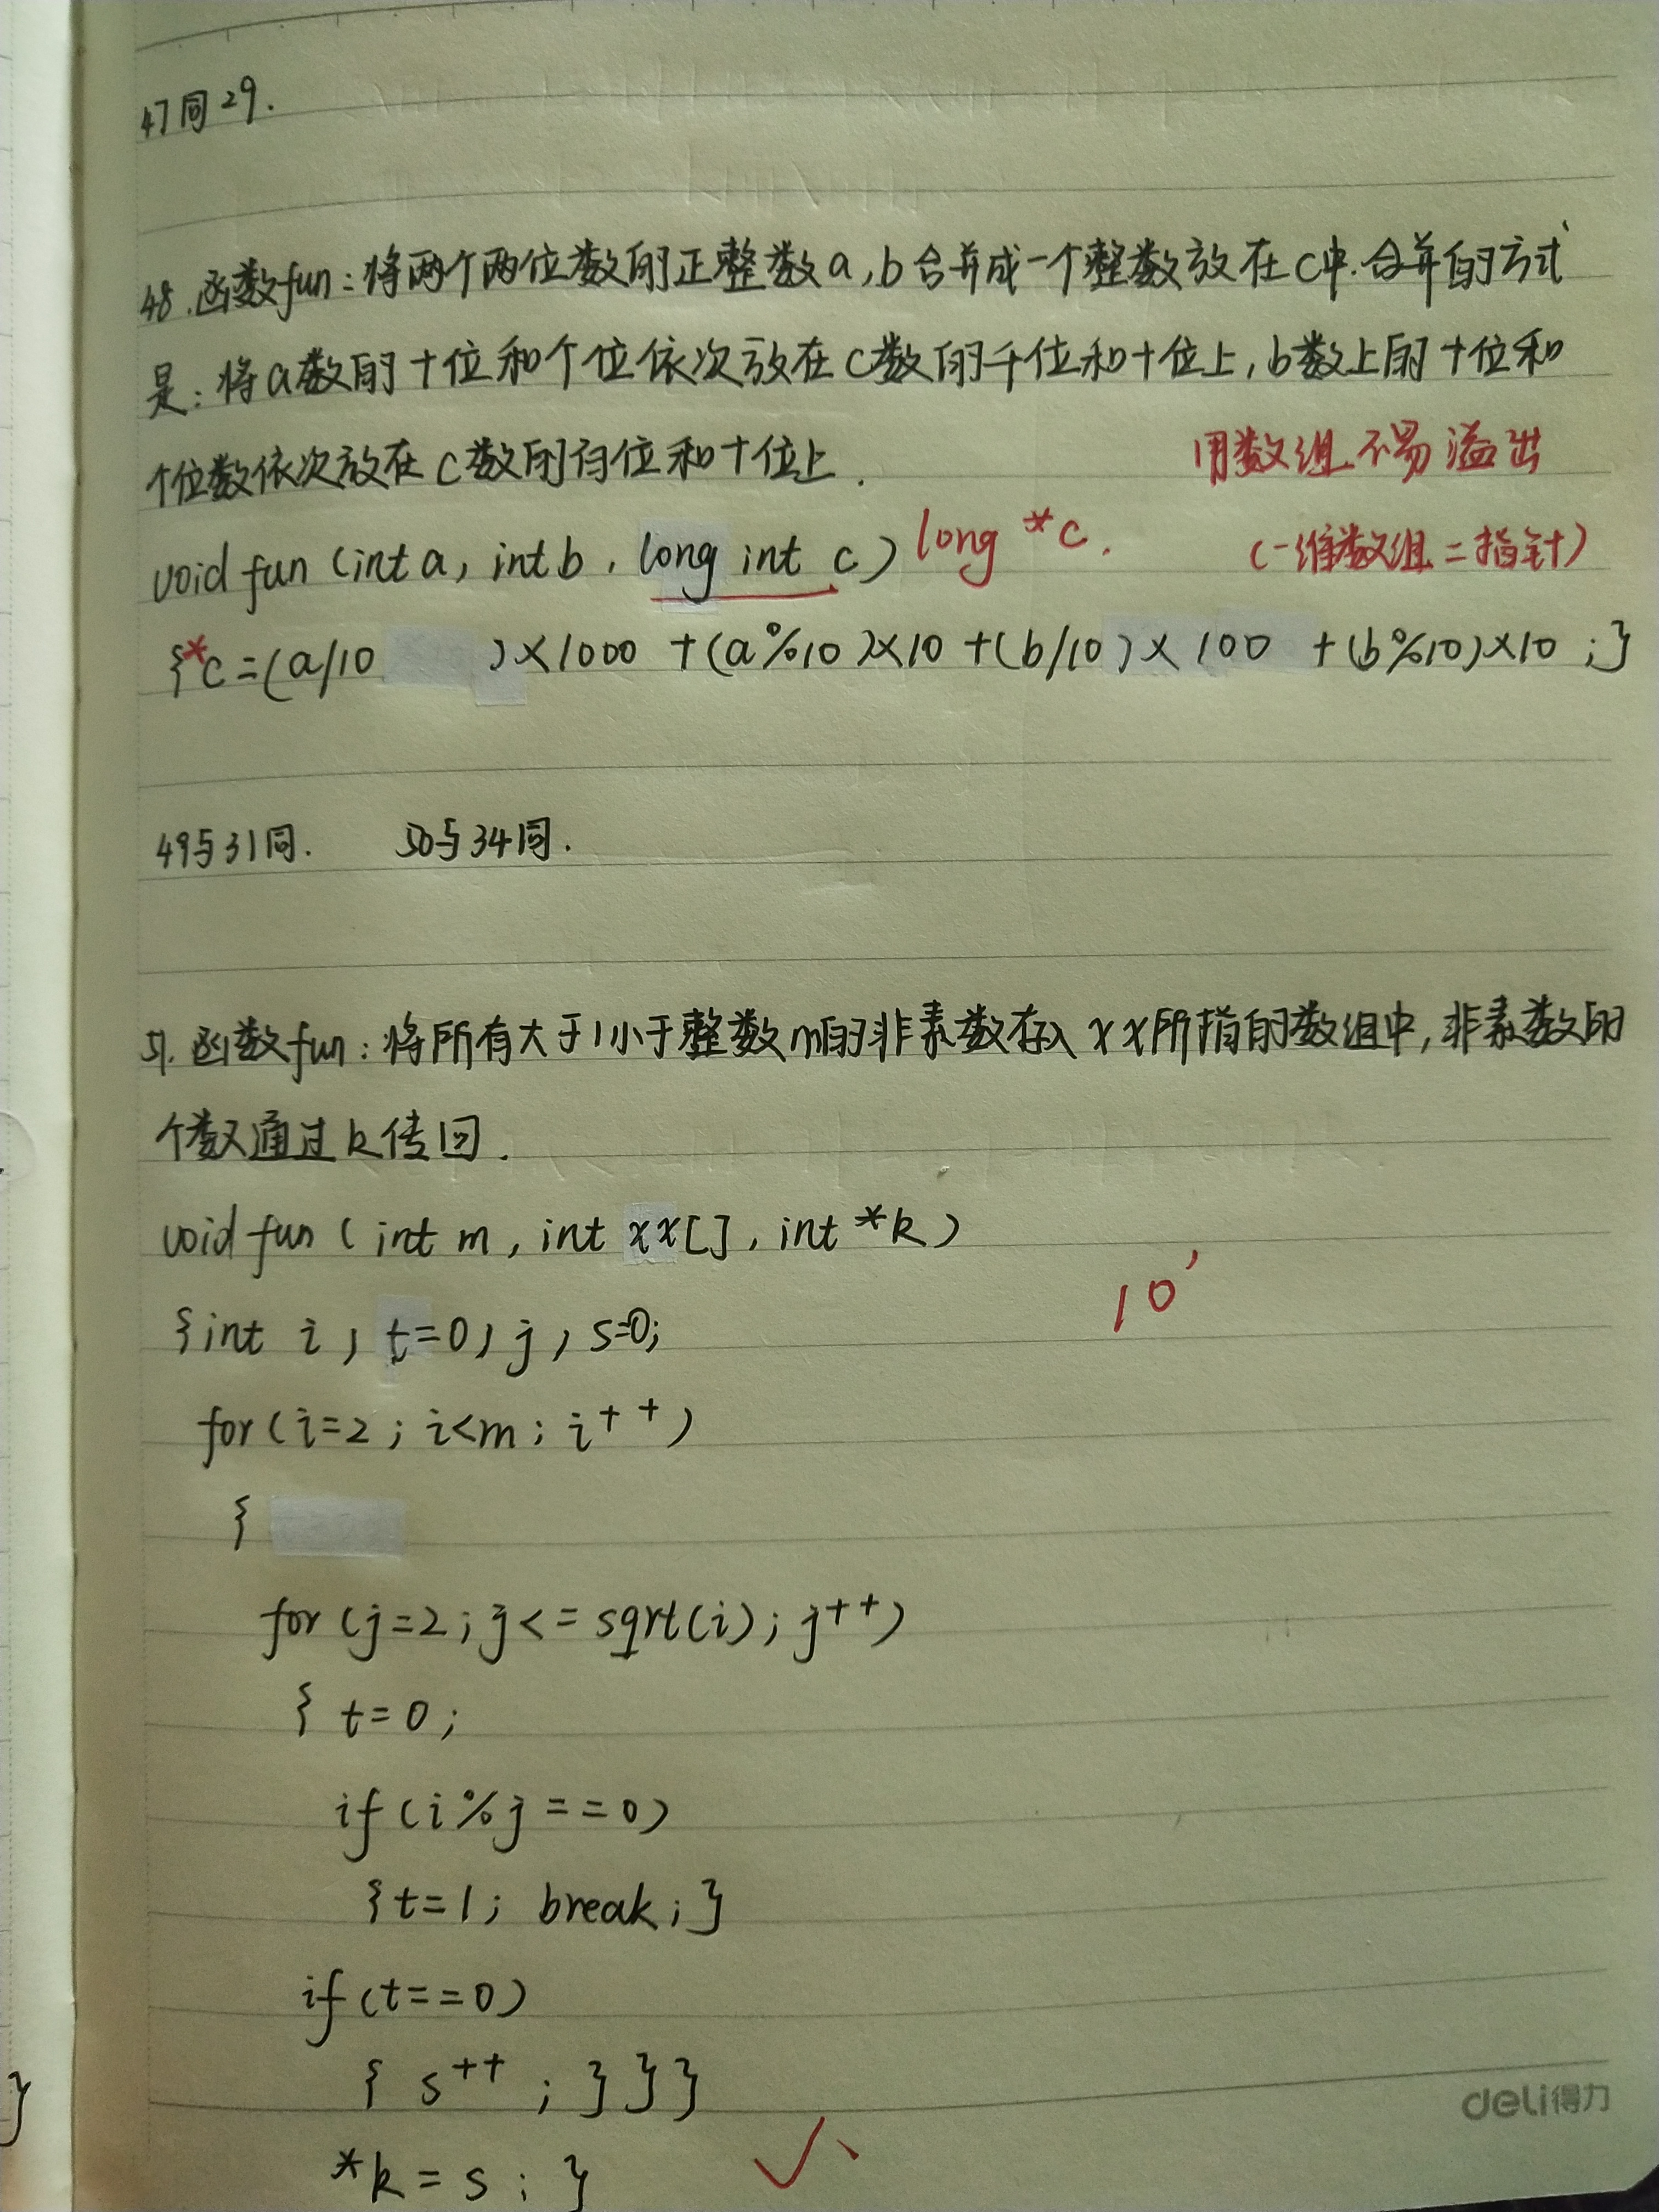 47同29.
48.函数fun:将两个两位数的正整数a,b合并成一个整数放在c中.合并的方式
是:将a数的十位和个位依次放在c数的千位和十位上,b数上的十位和
个位数依次放在c数的百位和十位上.
用数组不易溢出
void fun (int a, int b, long int c) long *c.
(一维数组=指针)
{*c=(a/10 )×1000 +(a%10)×10 +(b/10)× 100 +(b%10)×10 ;}
49与31同. 50与34同.
51.函数fun:将所有大于1小于整数m的非素数存入xx所指的数组中,非素数的
个数通过k传回.
void fun ( int m, int xx[], int *k)
10'
{int i, t=0, j, s=0;
for(i=2; i<m; i++)
{
for(j=2;j<=sqrt(i);j++)
{ t=0;
if(i%j==0)
{t=1; break;}
if(t==0)
{ s++ ; } } }
deli得力
*k=s; }
}